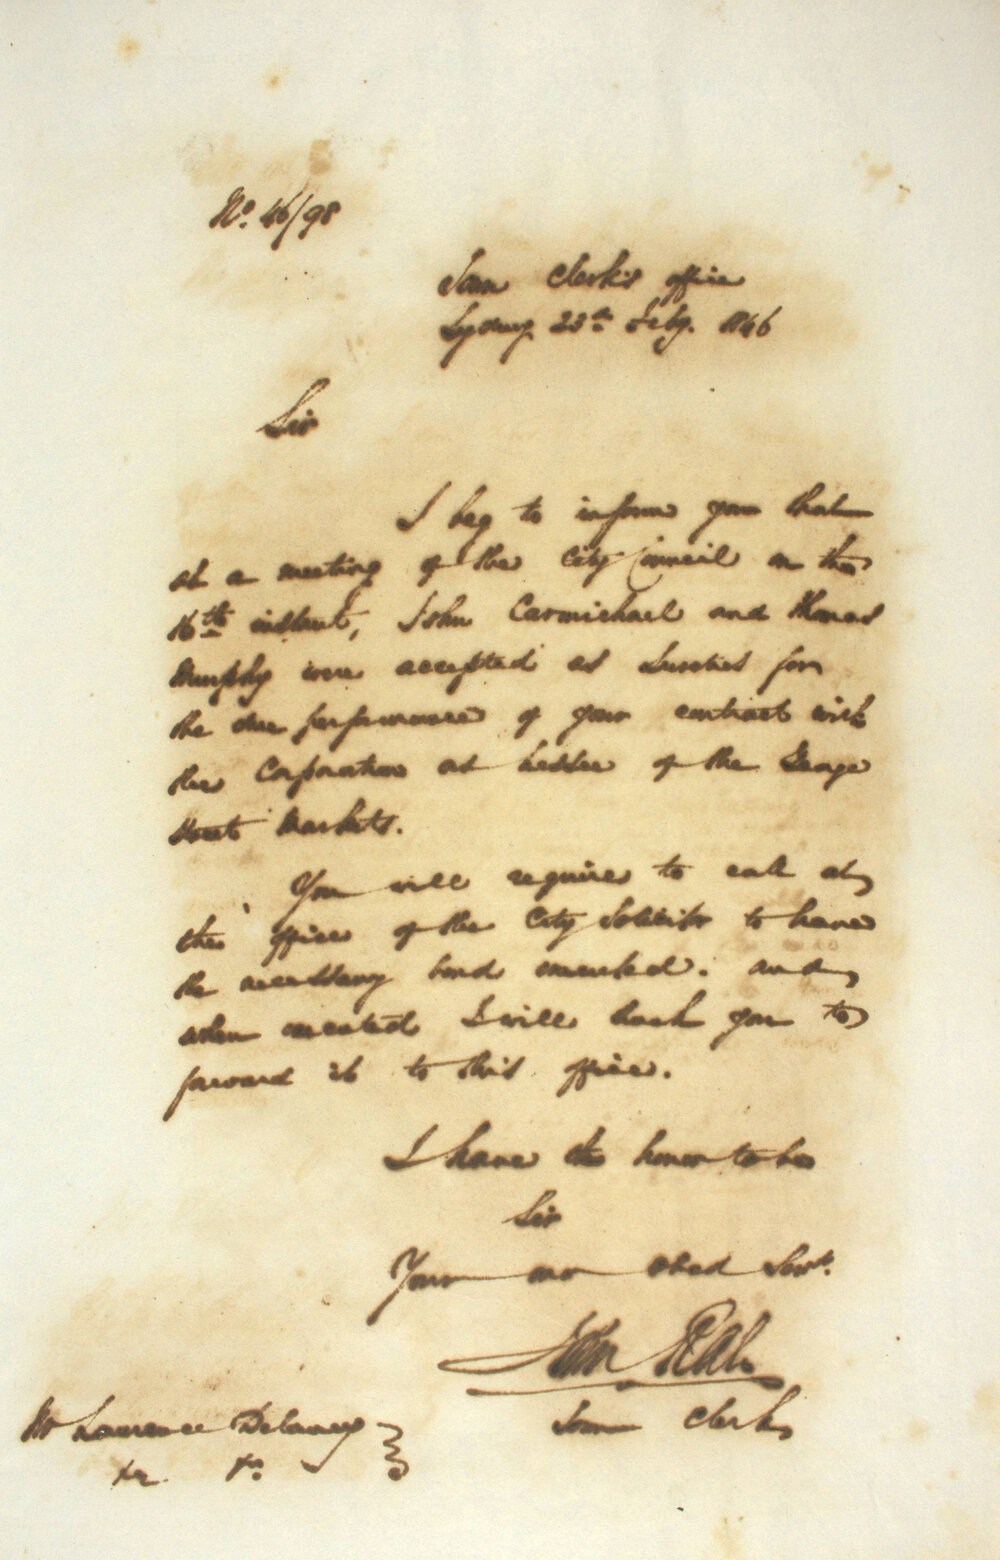 No. 46/98
Town Clerk's office
Sydney 23rd Feby. 1846
Sir
I beg to inform you that
at a meeting of the City Council on the
16th instant, John Carmichael and Thomas
Murphy were accepted as Sureties for
the due performance of your contract with
the Corporation as Lessee of the George
Street Markets.
You will require to call at
the office of the City Solicitor to have
the necessary bond executed. and
when executed I will thank you to
forward it to this office.
I have the honor to be
Sir
Your mo Obed Servt.
John
Town Clerk
Mr Laurence Delaney